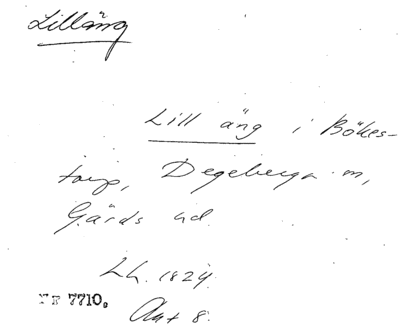 Lilläng
Lill äng i Bökes-
torp, Degeberga sn,
Gärds hd.
Lh. 1824
Akt 8.
Nr 7710.